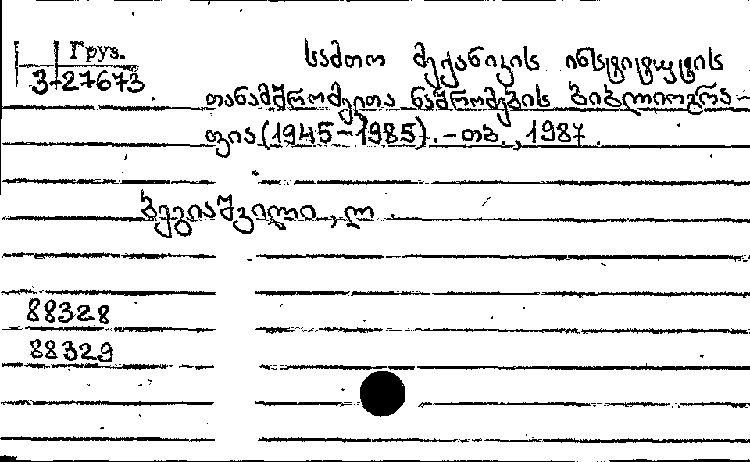 Груз.
3-27673
სამთო მექანიკის ინსტიტუტის
თანამშრომელთა ნაშრომების ბიბლიოგრა-
ფია (1945-1985). - თბ., 1987.
ბეგიაშვილი, ლ.
88328
88329